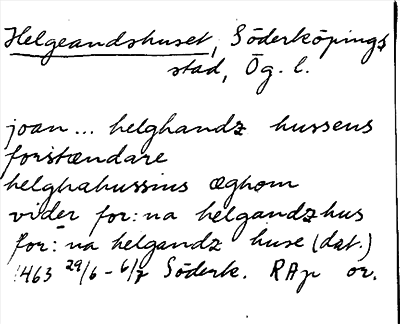 Helgeandshuset, Söderköpings
stad, Ög. l.
joan... helghandz hussens
forstændare
helghahussins æghom
vider for:na helgandzhus
for:na helgandz huse (dat.)
1463 29/6 - 6/7 Söderk. RAp or.